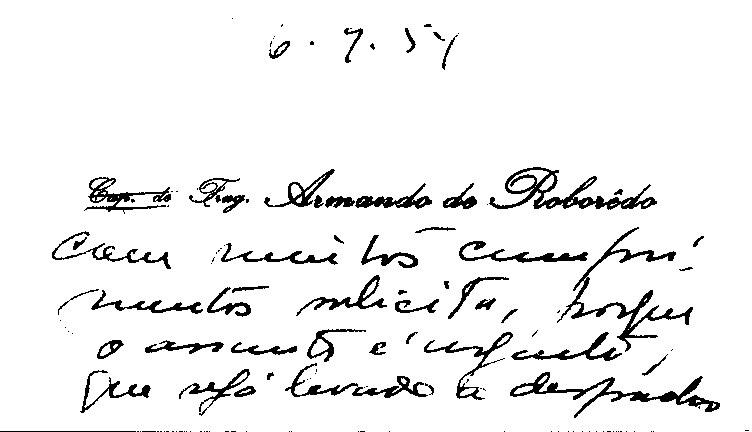 6.7.54
Cap. de Frag. Armando de Roborêdo
com muitos cumpri-
mentos solicita, porque
o assunto é urgente,
que seja levado a despacho